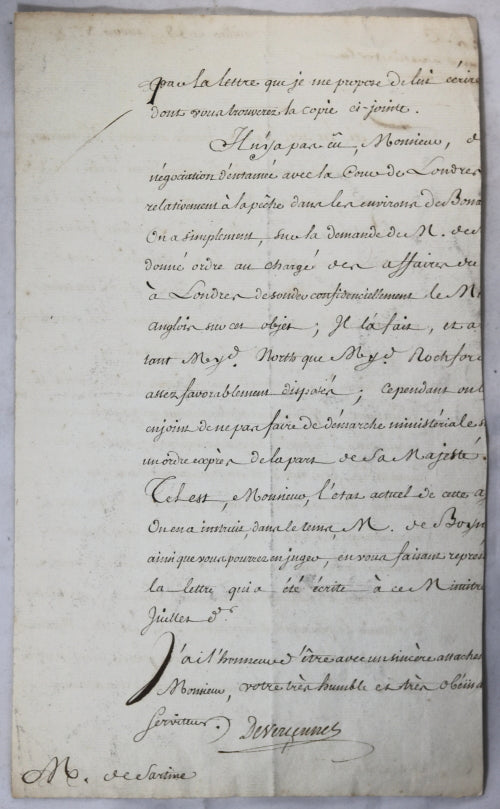 par la lettre que je me propose de lui écrire
dont vous trouverez la copie ci-jointe.
Il n'ya pas eû, Monsieur, d
négociation d'entamée avec la Cour de Londres
relativement à la pêche dans les environs de Bona
On a simplement, sur la demande de M. de
donné ordre au chargé des affaires du
à Londres de sonder confidenciellement le M
anglois sur cet objet; Il l'a fait, et a
tant Meyd. North que Meyd. Rochford
assez favorablement disposés; cependant on l
enjoint de ne pas faire de démarche ministérielle s
un ordre exprès de la part de Sa Majesté.
Tel est, Monsieur, l'état actuel de cette a
On en a instruit, dans le tems, M. de Boyn
ainsi que vous pourrez en juger, en vous faisant représ
la lettre qui a été écrite à ce Ministre
Juillet dr.
J'ai l'honneur d'être avec un sincère attache
Monsieur, votre très humble et très obéissa
Serviteur. De Vergennes
M. de Sartine